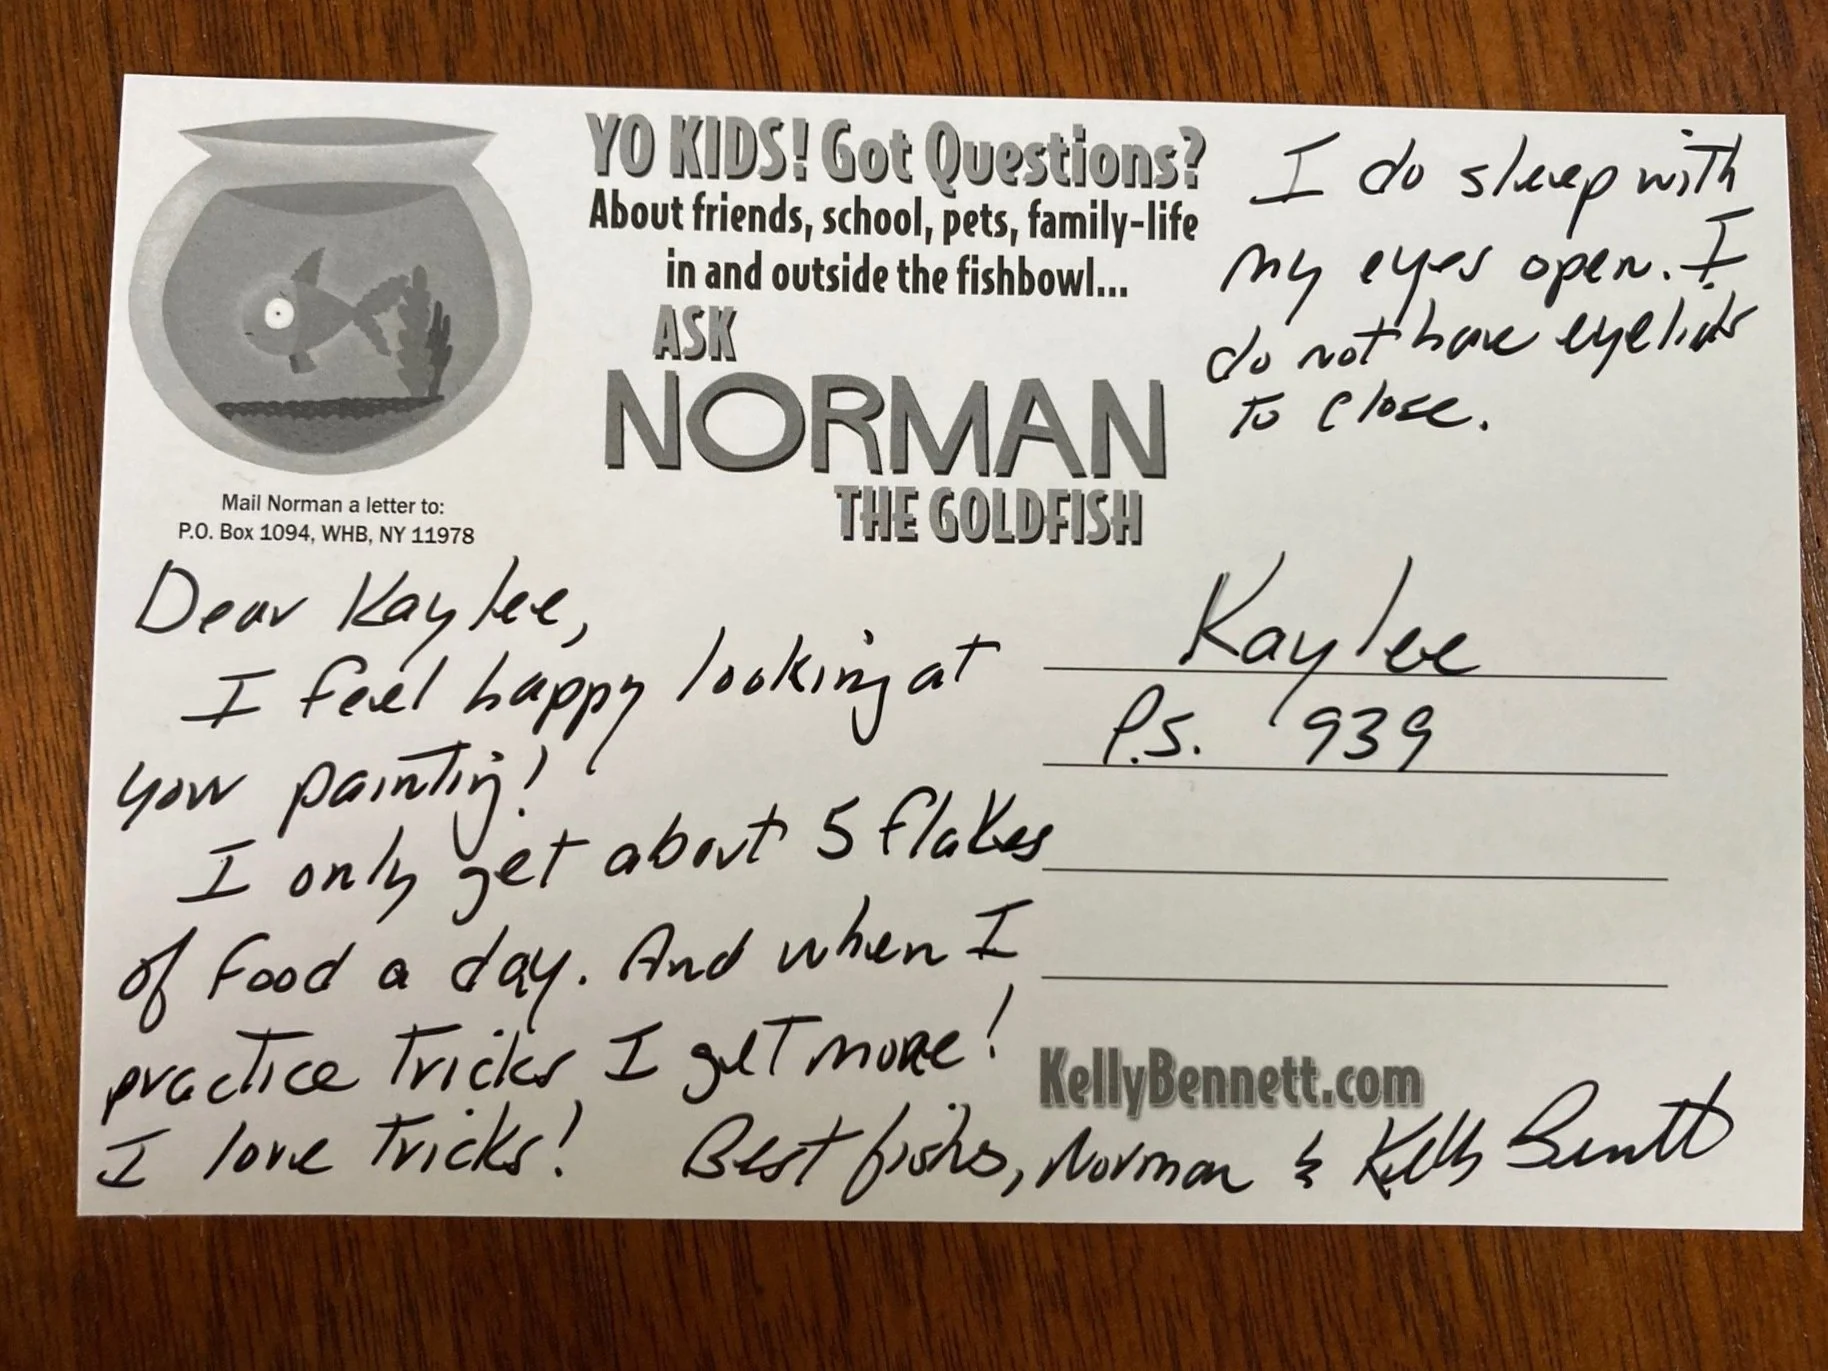 YO KIDS! Got Questions?
About friends, school, pets, family-life
in and outside the fishbowl...
ASK
NORMAN
THE GOLDFISH
Mail Norman a letter to:
P.O. Box 1094, WHB, NY 11978
I do sleep with
my eyes open. I
do not have eyelids
to close.
Dear Kaylee,
I feel happy looking at
your painting!
I only get about 5 flakes
of food a day. And when I
practice tricks I get more!
I love tricks!
Best fishes, Norman & Kelly Bennett
Kaylee
P.S. 939
KellyBennett.com